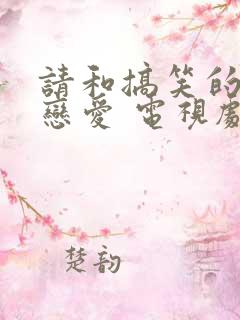 請和搞笑的
戀愛 電視劇
楚韵